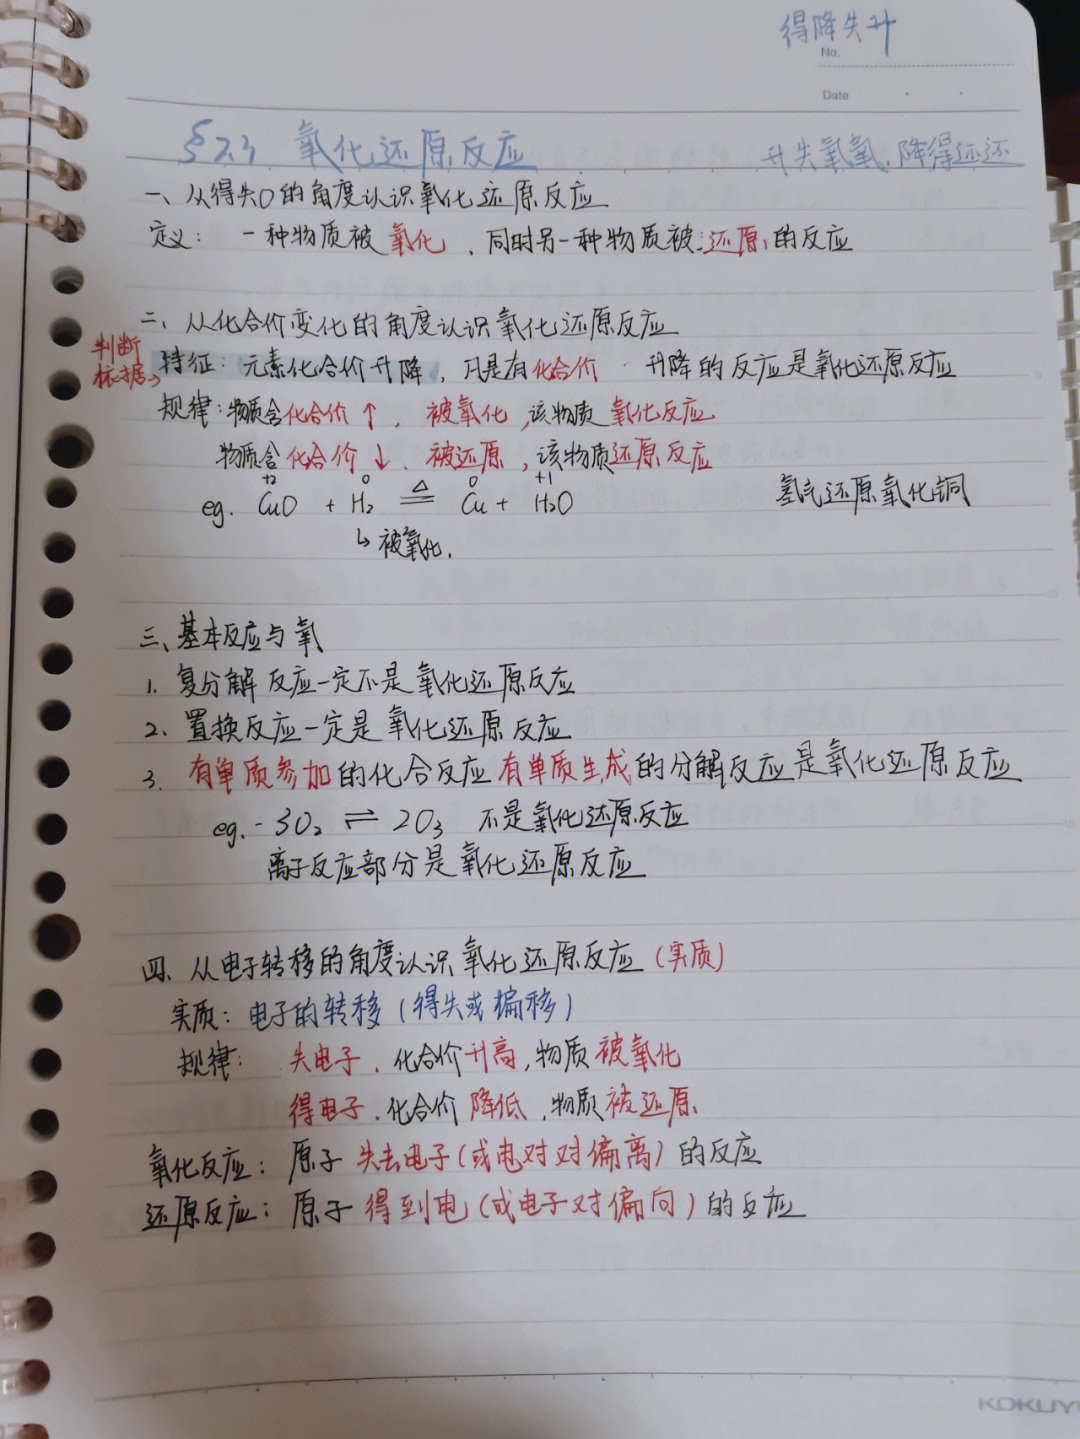 得降失升
No.
Date
§2.3 氧化还原反应
升失氧氧、降得还还
一、从得失O的角度认识氧化还原反应
定义: 一种物质被氧化、同时另一种物质被还原的反应
二、从化合价变化的角度认识氧化还原反应
判断
标据→
特征: 元素化合价升降, 凡是有化合价 升降的反应是氧化还原反应
规律: 物质含化合价↑, 被氧化, 该物质氧化反应
物质含化合价↓、被还原, 该物质还原反应
+2 0 0 +1
eg. CuO + H₂ ≜ Cu + H₂O
氢气还原氧化铜
↳被氧化.
三、基本反应与氧
1. 复分解反应一定不是氧化还原反应
2. 置换反应一定是氧化还原反应
3. 有单质参加的化合反应有单质生成的分解反应是氧化还原反应
eg. - 3O₂ ⇌ 2O₃ 不是氧化还原反应
离子反应部分是氧化还原反应
四、从电子转移的角度认识氧化还原反应(实质)
实质: 电子的转移(得失或偏移)
规律: 失电子、化合价升高, 物质被氧化
得电子、化合价降低、物质被还原
氧化反应: 原子失去电子(或电对对偏离)的反应
还原反应: 原子得到电(或电子对偏向)的反应
KOKUY